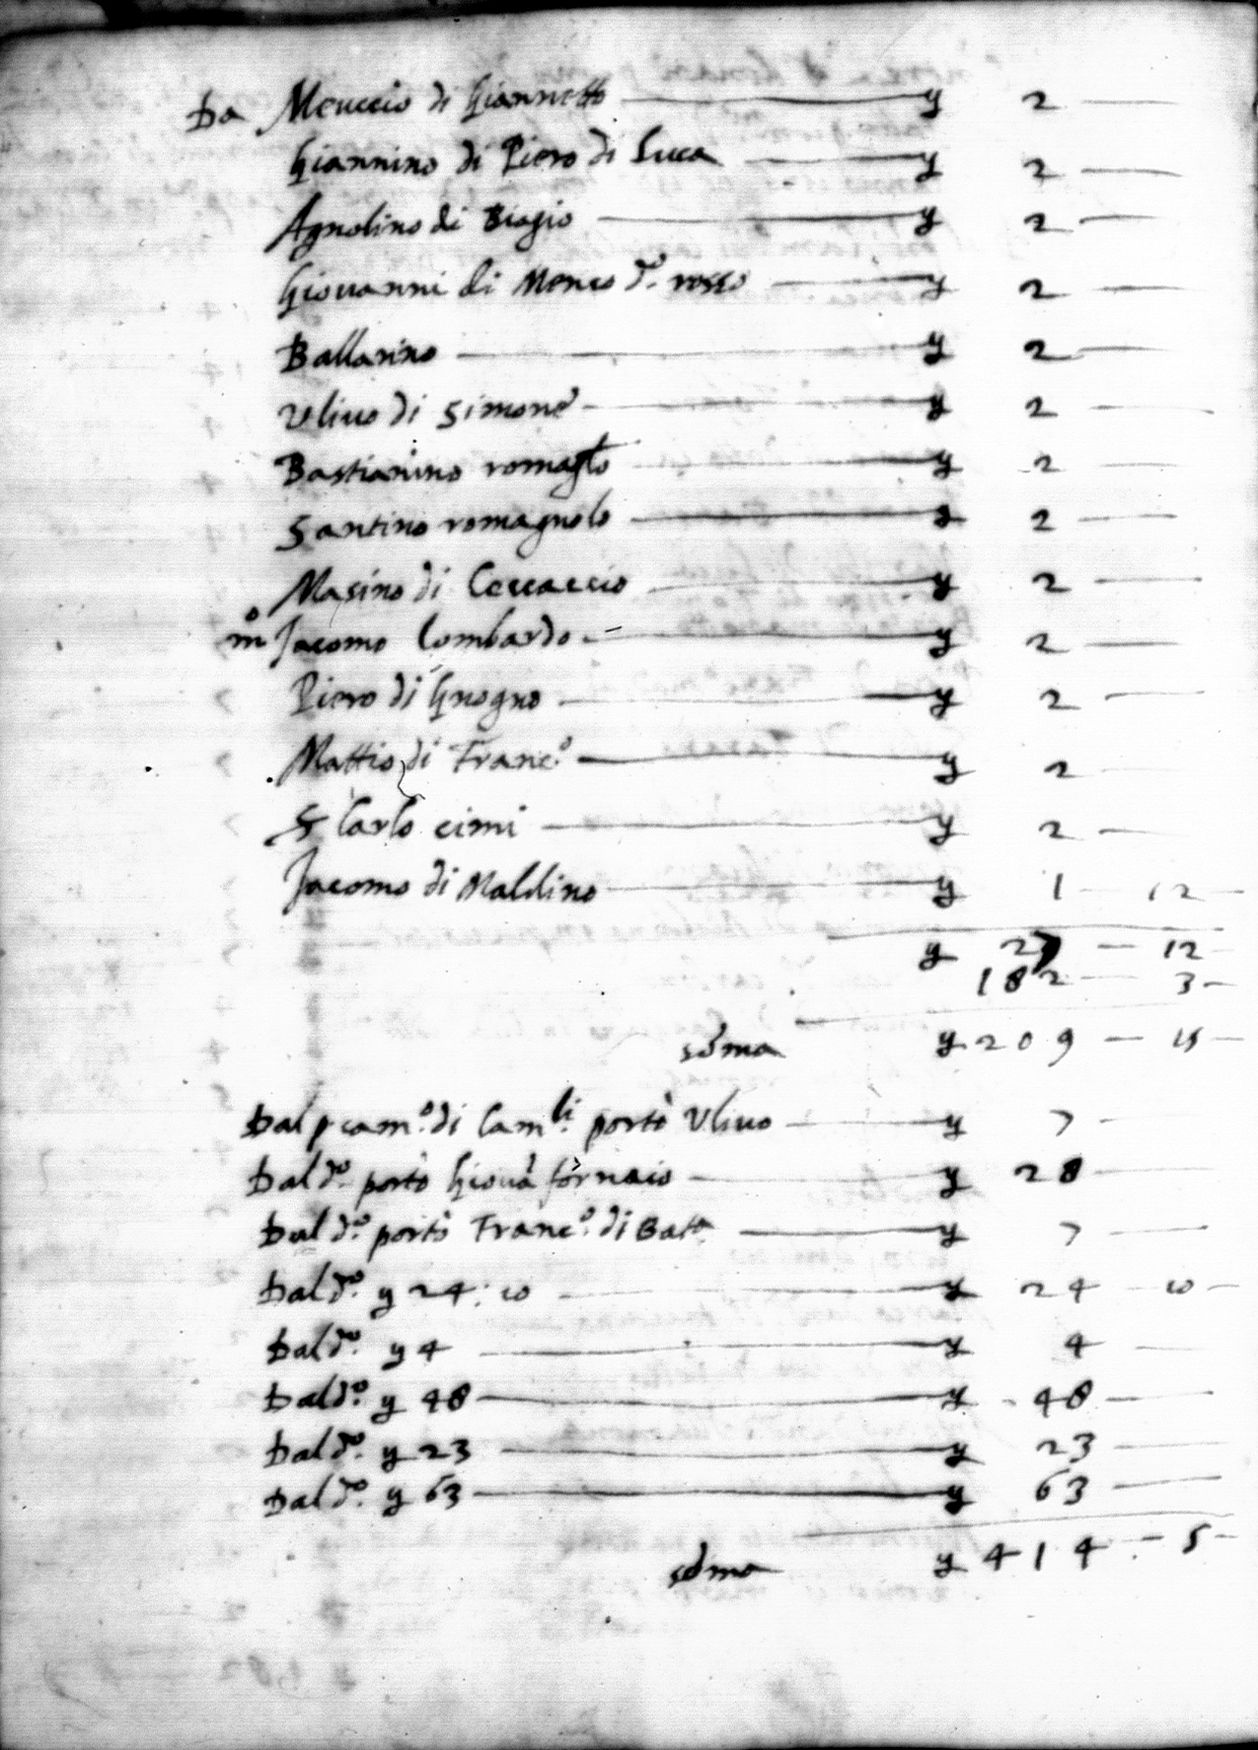 Da Meuccio di Giannetto — y 2 —
Giannino di Piero di Luca — y 2 —
Agnolino di Biagio — y 2 —
Giovanni di Menco d.º rosso — y 2 —
Ballarino — y 2 —
Ulivo di Simone — y 2 —
Bastianino romag.lo — y 2 —
Santino romagnolo — y 2 —
Masino di Ceccaccio — y 2 —
m.º Jacomo Lombardo — y 2 —
Piero di Gnogno — y 2 —
Mattio di Franc.º — y 2 —
S Carlo cimi — y 2 —
Jacomo di Naldino — y 1 — 12
y 27 — 12
182 — 3 —
soma y 209 — 15 —
Dal p cam.º di Cam.li portò Ulivo — y 7 —
Dal d.º portò Giovā fornaio — y 28 —
Dal d.º portò Franc.º di Batt.a — y 7 —
Dal d.º y 24: 10 — y 24 — 10 —
Dal d.º y 4 — y 4 —
Dal d.º y 48 — y 48 —
Dal d.º y 23 — y 23 —
Dal d.º y 63 — y 63 —
soma y 414 — 5 —